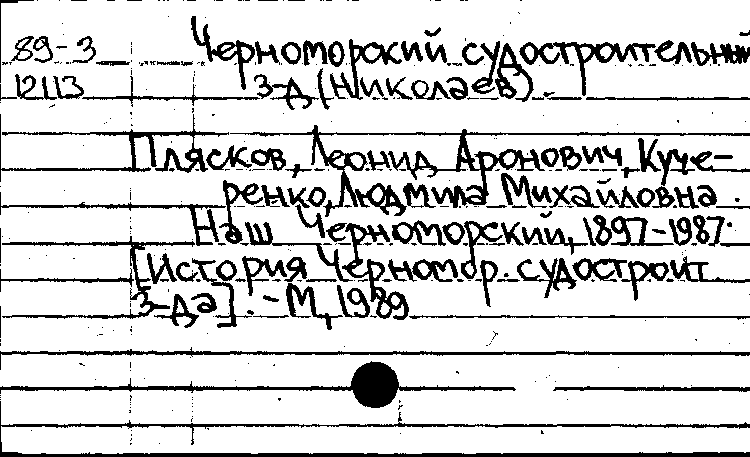 89-3 Черноморский судостроительный
12113 З-д (Николаев).
Плясков, Леонид Аронович, Куче-
ренко, Людмила Михайловна.
Наш Черноморский, 1897-1987.
[История Черномор. судостроит.
З-да]. - М, 1989